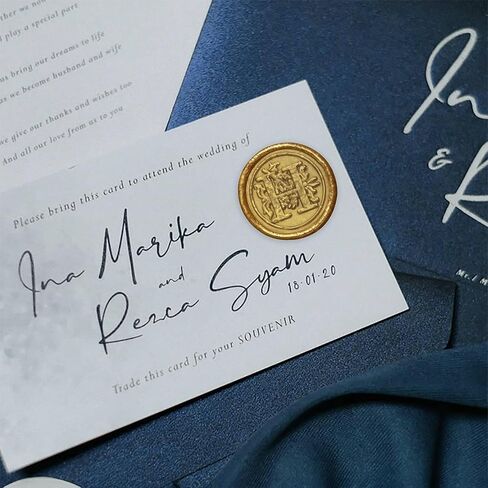 ther we now
d play a special part
us bring our dreams to life
as we become husband and wife
we give our thanks and wishes too
And all our love from us to you
Please bring this card to attend the wedding of
Ina Marika
and
Rezca Syam
18·01·20
Trade this card for your SOUVENIR
In
& R
Mr. / M